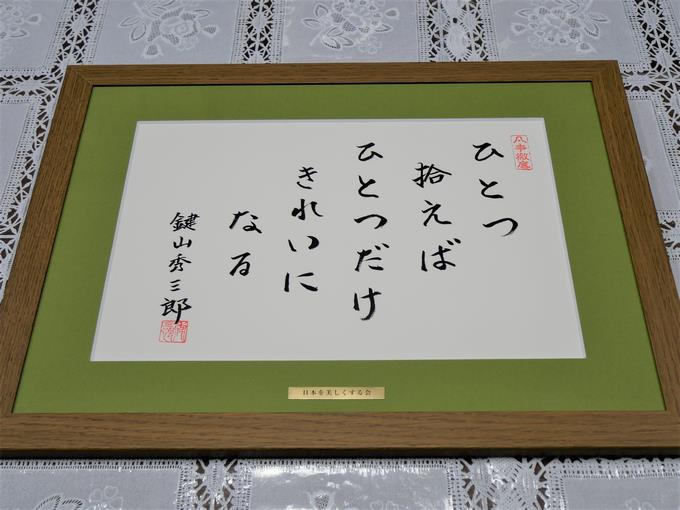 凡事徹底
ひとつ
拾えば
ひとつだけ
きれいに
なる
鍵山秀三郎
日本を美しくする会